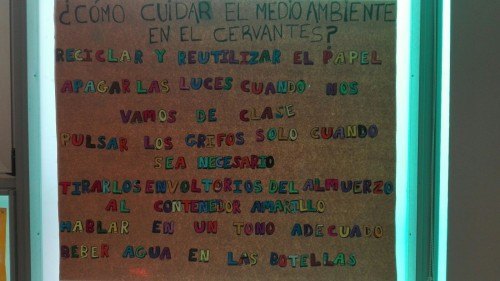 ¿CÓMO CUIDAR EL MEDIO AMBIENTE
EN EL CERVANTES?
RECICLAR Y REUTILIZAR EL PAPEL
APAGAR LAS LUCES CUANDO NOS
VAMOS DE CLASE
PULSAR LOS GRIFOS SOLO CUANDO
SEA NECESARIO
TIRAR LOS ENVOLTORIOS DEL ALMUERZO
AL CONTENEDOR AMARILLO
HABLAR EN UN TONO ADECUADO
BEBER AGUA EN LAS BOTELLAS